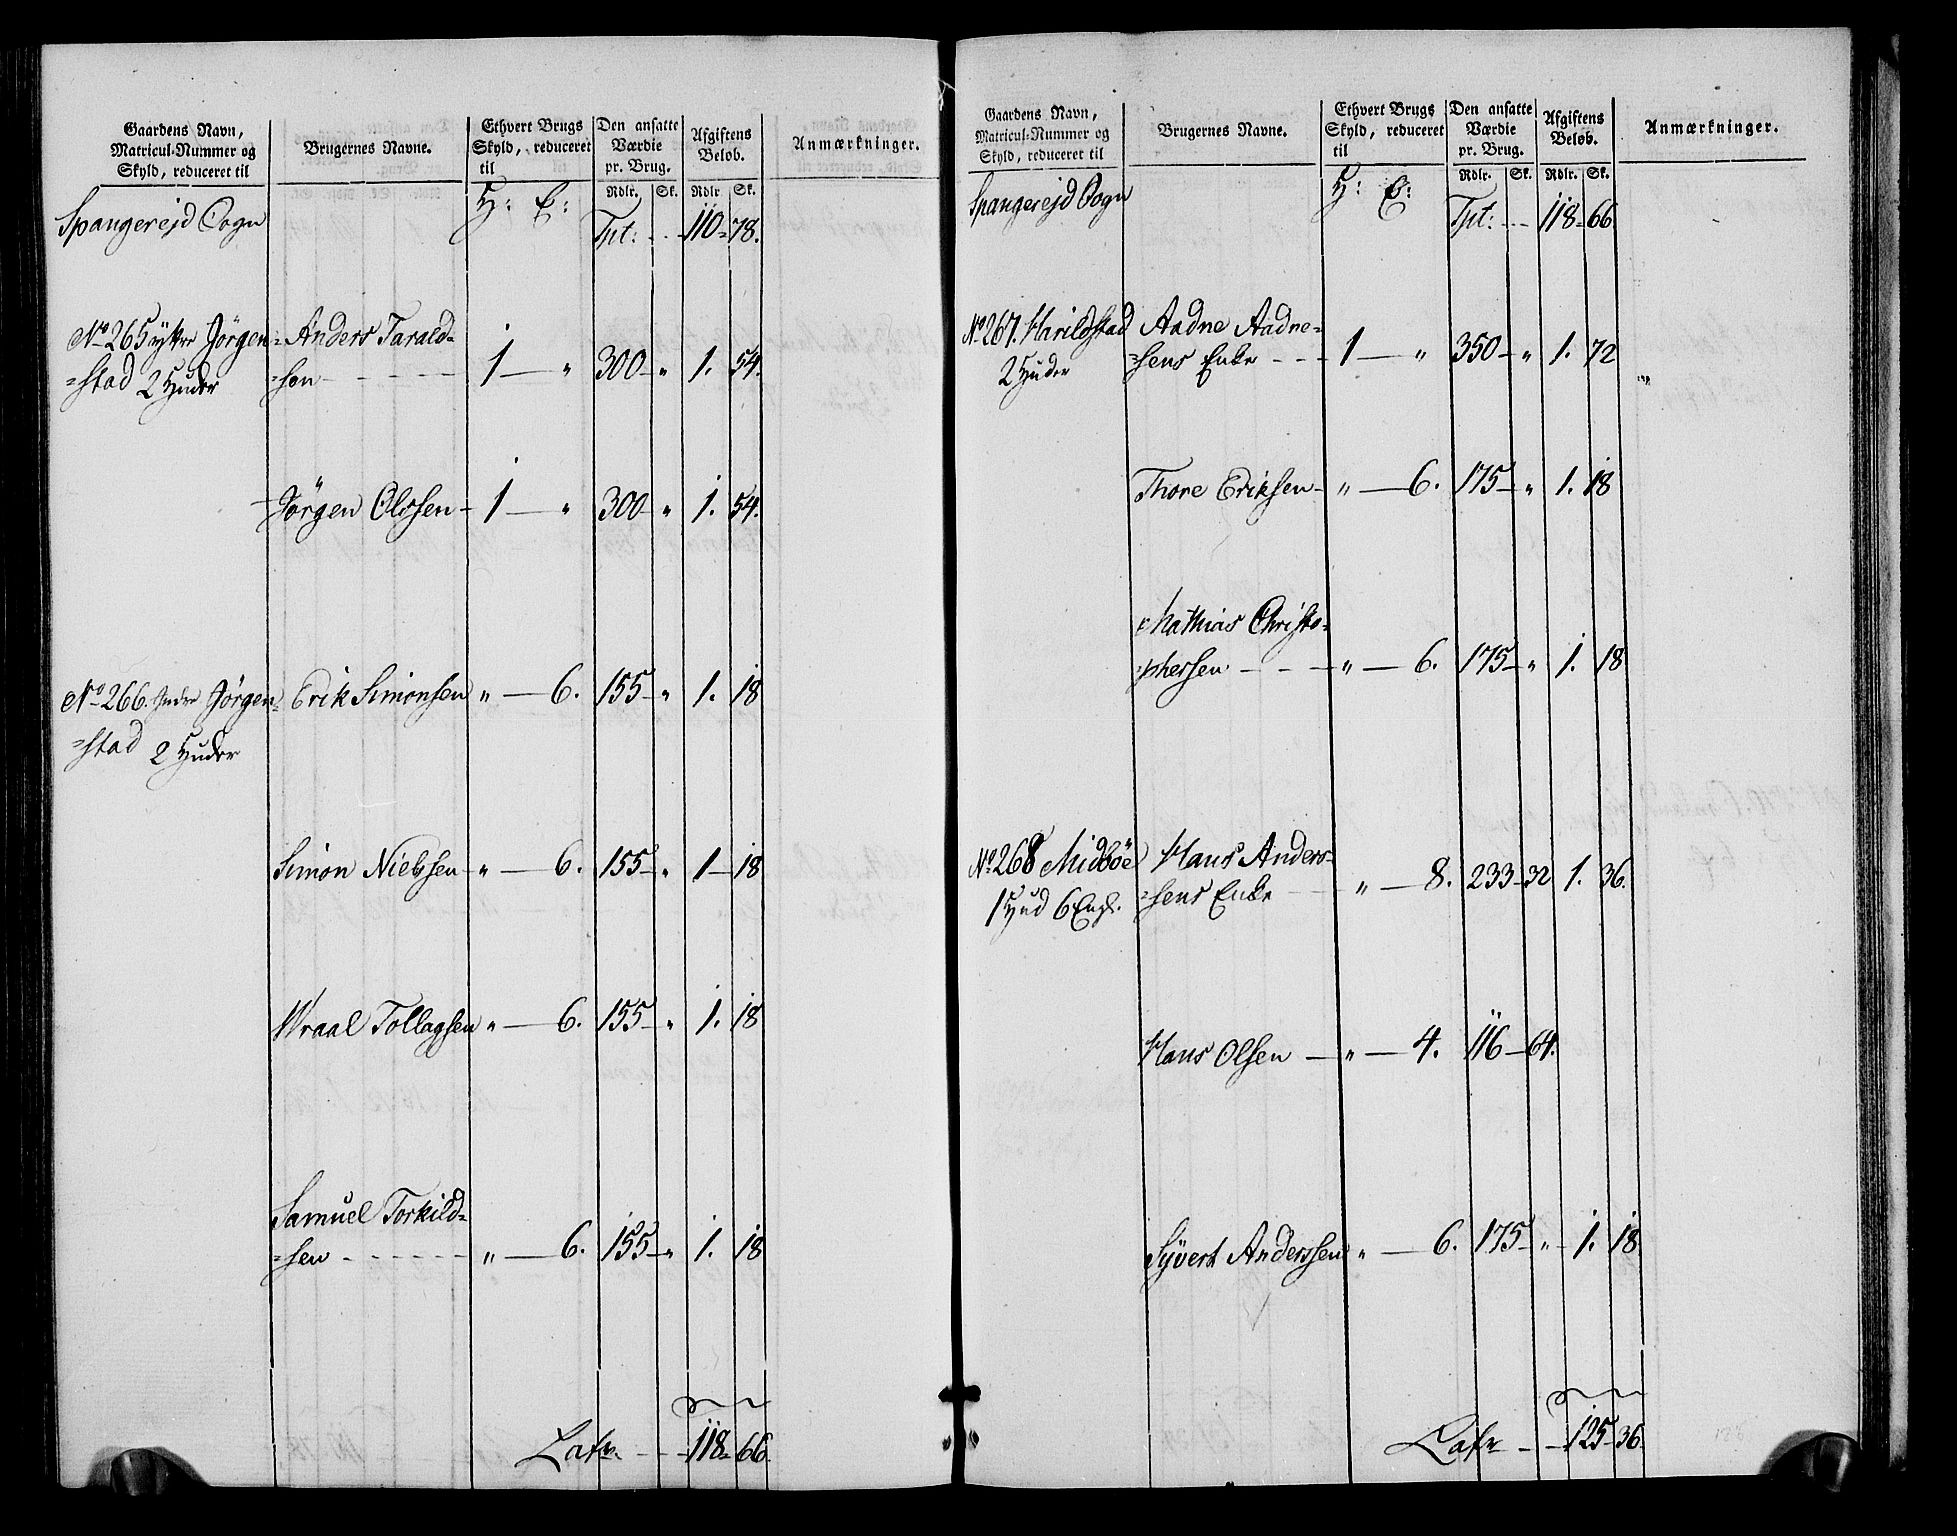 Gaardens Navn,
Matricul-Nummer og
Skyld, reduceret til
Brugernes Navne.
Ethvert Brugs
Skyld, reduceret
til
Den ansatte
Værdie
pr. Brug.
Afgiftens
Beløb.
Anmærkninger.
Rdlr. Sk. Rdlr Sk.
Spangereid Sogn H: E: Tpt: 110 - 78.
No 265 ytter Jørgen= Anders Tarald=
=stad 2 Huder =sen 1 — " 300 — " 1. 54.
Jørgen Olssen 1 — " 300 — " 1. 54.
No 266. Indre Jørgen= Erik Simonsen " — 6. 155 — " 1. 18
=stad 2 Huder
Simon Nielssen " — 6. 155 — " 1 — 18
Wraal Tollagsen " — 6. 155 — " 1. 18
Samuel Torkild=
=sen " — 6. 155 — " 1. 18
Lats 118 - 66.
Gaardens Navn,
Matricul-Nummer og
Skyld, reduceret til
Brugernes Navne.
Ethvert Brugs
Skyld, reduceret
til
Den ansatte
Værdie
pr. Brug.
Afgiftens
Beløb.
Anmærkninger.
Rdlr. Sk. Rdlr. Sk.
Spangereid Sogn H: E: Tpt: 118 - 66.
No 267. Harildstad Aadne Aadne=
2 Huder =sens Enke 1 — " 350 — " 1. 72
Thore Eriksen " — 6. 175 — " 1. 18
Mathias Christo=
=phersen " — 6. 175 — " 1. 18
No 268 Midböe Hans Anders=
1 Hud 6 Engl. =sens Enke " — 8. 233 — 32 1. 36.
Hans Olsen " — 4. 116 — 64.
Syvert Anderssen " — 6. 175 — " 1. 18
Lats 125 - 36.
128